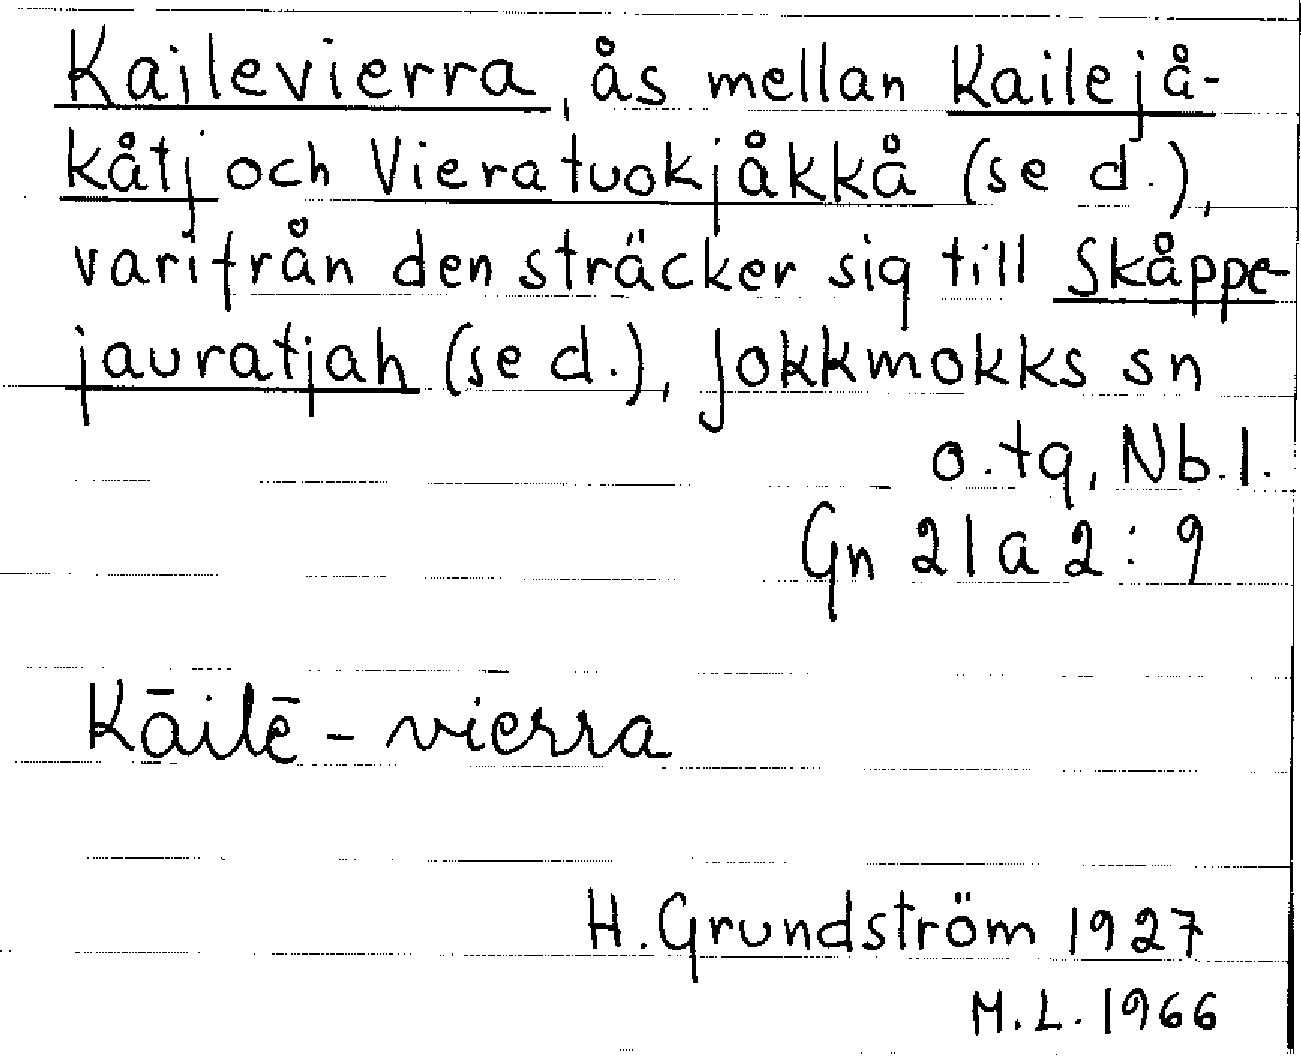 Kailevierra, ås mellan Kailejå-
kåtj och Vieratuokjåkkå (se d.),
varifrån den sträcker sig till Skåppe-
jauratjah (se d.), Jokkmokks sn
o. tg, Nb. l.
Gn 21a2:9
Kāilē - vierra
H. Grundström 1927
M.L. 1966